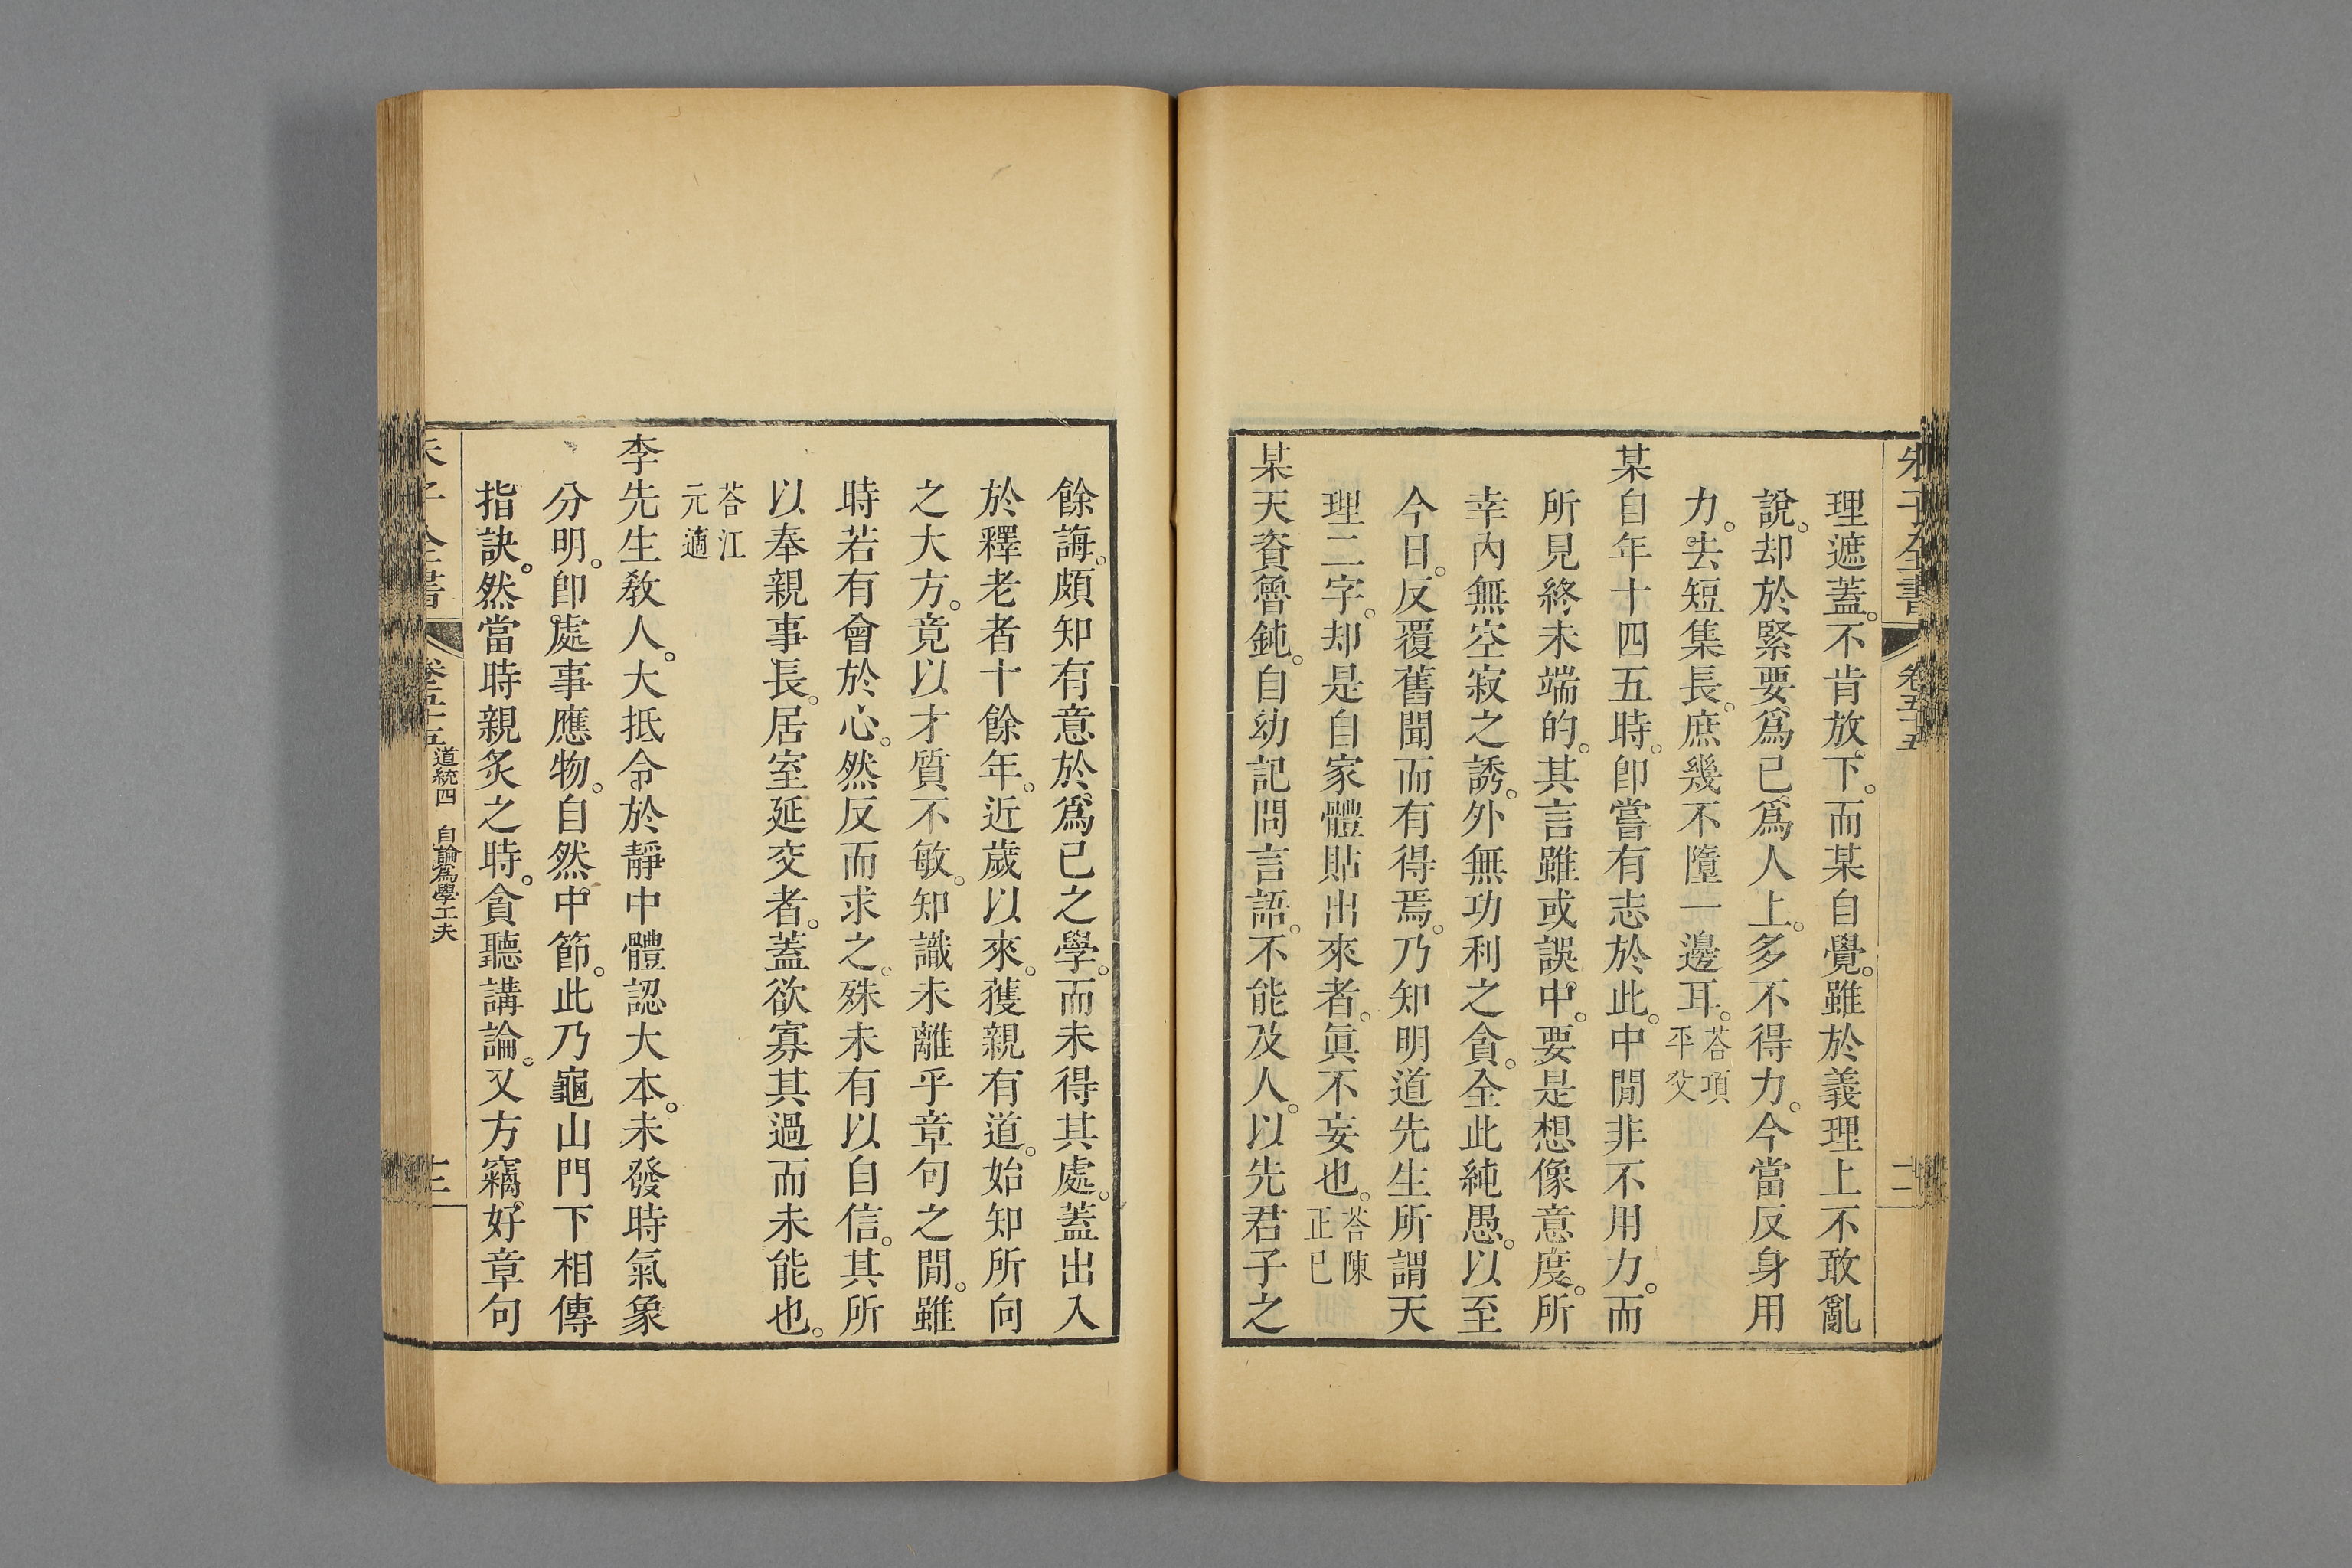 朱子全書
卷五十五
理遮蓋。不肯放下。而某自覺。雖於義理上不敢亂
說。却於緊要爲己爲人上。多不得力。今當反身用
力。去短集長。庶幾不墮一邊耳。荅項平父
某自年十四五時。卽嘗有志於此。中閒非不用力。而
所見終未端的。其言雖或誤中。要是想像意度。所
幸內無空寂之誘。外無功利之貪。全此純愚。以至
今日。反覆舊聞而有得焉。乃知明道先生所謂天
理二字。却是自家體貼出來者。眞不妄也。荅陳正己
某天資魯鈍。自幼記問言語。不能及人。以先君子之
餘誨。頗知有意於爲己之學。而未得其處。蓋出入
於釋老者十餘年。近歲以來。獲親有道。始知所向
之大方。竟以才質不敏。知識未離乎章句之閒。雖
時若有會於心。然反而求之。殊未有以自信。其所
以奉親事長。居室延交者。蓋欲寡其過而未能也。
荅江元適
李先生敎人。大抵令於靜中體認大本。未發時氣象
分明。卽處事應物。自然中節。此乃龜山門下相傳
指訣。然當時親炙之時。貪聽講論。又方竊好章句
朱子全書
卷五十五
道統四 自論爲學工夫